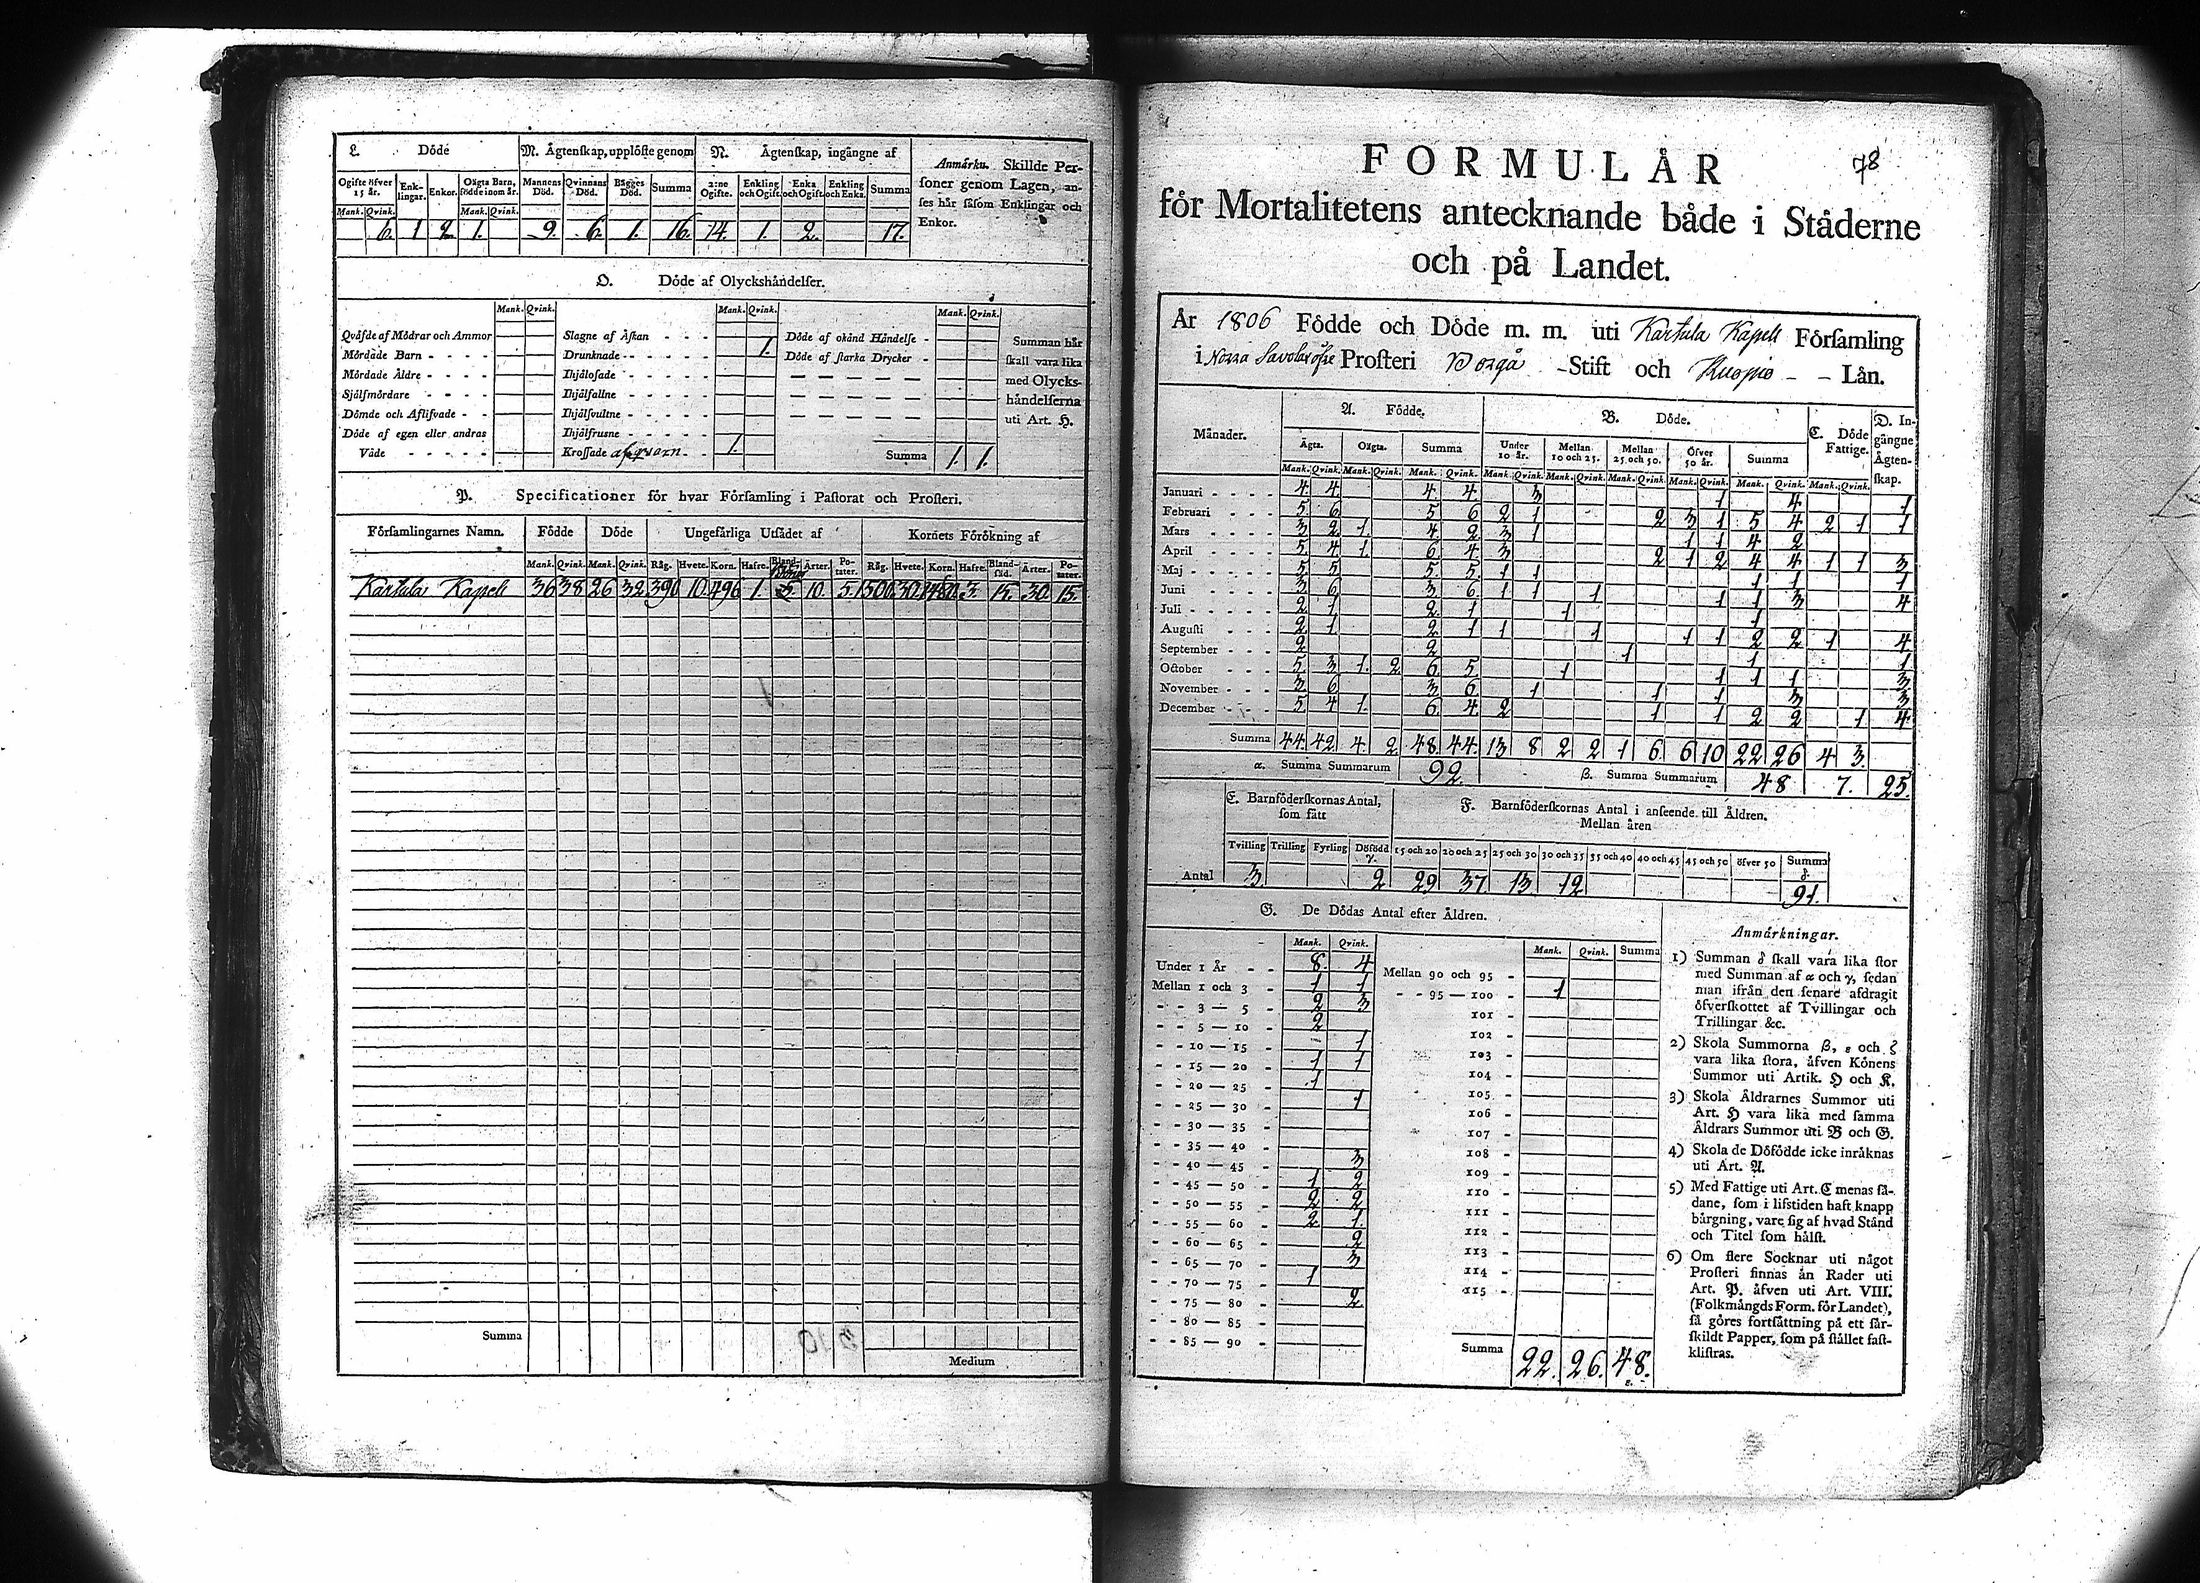 L. Döde
M. Ågtenskap, upplöste genom
N. Ågtenskap, ingångne af
Anmärkn. Skillde Per-
soner genom Lagen, an-
ses hår såsom Enklingar och
Enkor.
Ogifte öfver 15 år. Enk-lingar. Enkor. Oägta Barn, födde inom år. Mannens Död. Qvinnans Död. Bägges Död. Summa 2:ne Ogifte. Enkling och Ogift. Enka och Ogift. Enkling och Enka. Summa
Mank. Qvink. Mank. Qvink.
6. 1 2 1. 9. 6. 1. 16. 14. 1. 2. 17.
O. Döde af Olyckshåndelser.
Mank. Qvink. Mank. Qvink. Mank. Qvink.
Qvåfde af Mödrar och Ammor
Mördade Barn
Mördade Äldre
Sjålfmördare
Dömde och Aflifvade
Döde af egen eller andras
Våde
Slagne af Åskan
Drunknade 1.
Ihjålosade
Ihjålfallne
Ihjålsvultne
Ihjålfrusne
Krossade af qvarn 1.
Döde af okånd Håndelse
Döde af starka Drycker
Summa 1. 1.
Summan hår
skall vara lika
med Olycks-
håndelserna
uti Art. H.
P. Specificationer för hvar Församling i Pastorat och Prosteri.
Församlingarnes Namn. Födde Döde Ungefårliga Utsådet af Kornets Förökning af
Mank. Qvink. Mank. Qvink. Råg. Hvete. Korn. Hafre. Årter. Po-tater. Råg. Hvete. Korn. Hafre. Bland-såd. Årter. Po-tater.
Kartula Kapell 36 38 26 32 390 10 496 1. 10. 5. 1500 30. 3. 30. 15.
Summa
Medium
78
FORMULÅR
för Mortalitetens antecknande både i Ståderne
och på Landet.
År 1806 Födde och Döde m. m. uti Kartula Kapell Församling
i Norra Savolax öfre Prosteri Borgå Stift och Kuopio Lån.
Månader. A. Födde. B. Döde. C. Döde Fattige. D. In-gångne Ågten-skap.
Ågta. Oågta. Summa Under 10 år. Mellan 10 och 25. Mellan 25 och 50. Öfver 50 år. Summa
Mank. Qvink. Mank. Qvink. Mank. Qvink. Mank. Qvink. Mank. Qvink. Mank. Qvink. Mank. Qvink. Mank. Qvink. Mank. Qvink.
Januari 4. 4. 4. 4. 3 1 4. 1
Februari 5. 6 5 6 2 1 2 3 1 5 4 2 1 1
Mars 3 2 1 4 2 3 1 1 1 4 2
April 5. 4 1. 6. 4 3 2 1 2 4 4 1 1 3
Maj 5 5 5. 5. 1 1 1 1 1
Juni 3 6 3 6. 1 1 1 1 1 3 4
Juli 2 1 2. 1 1 1
Augusti 2 1 2 1 1 1 1 1 2 2 1 4
September 2 2 1 1 1
October 5. 3 1. 2 6 5. 1 1 1 1 3
November 3 6 3 6. 1 1 1 3 3
December 5. 4 1. 6. 4. 2 1 1 2 2 1 4
Summa 44. 42. 4. 2 48. 44. 13 8 2 2 1 6. 6 10 22 26 4 3.
α. Summa Summarum 92. β. Summa Summarum 48 7. 25.
E. Barnföderskornas Antal, som fått
F. Barnföderskornas Antal i anseende till Åldren.
Mellan åren
Tvilling Trilling Fyrling Döfödd γ. 15 och 20 20 och 25 25 och 30 30 och 35 35 och 40 40 och 45 45 och 50 öfver 50 Summa δ.
Antal 3 2 29 37. 13 12 91.
G. De Dödas Antal efter Åldren.
Mank. Qvink. Mank. Qvink. Summa
Under 1 År 8. 4
Mellan 1 och 3 1 1
3 — 5 2 3
5 — 10 2
10 — 15 1
15 — 20 1 1
20 — 25 1
25 — 30 1
30 — 35
35 — 40
40 — 45 3
45 — 50 1 2
50 — 55 2 2
55 — 60 2 1.
60 — 65 2
65 — 70 3
70 — 75 1
75 — 80 2.
80 — 85
85 — 90
Mellan 90 och 95
95 — 100 1
101
102
103
104
105
106
107
108
109
110
111
112
113
114
115
Summa 22. 26. 48.
Anmårkningar.
1) Summan δ skall vara lika stor
med Summan af α och γ, sedan
man ifrån den senare afdragit
öfverskottet af Tvillingar och
Trillingar &c.
2) Skola Summorna β, ε och ζ
vara lika stora, åfven Könens
Summor uti Artik. H och K.
3) Skola Åldrarnes Summor uti
Art. H vara lika med samma
Åldrars Summor uti B och G.
4) Skola de Döfödde icke inråknas
uti Art. A.
5) Med Fattige uti Art. C menas så-
dane, som i lifstiden haft knapp
bårgning, vare sig af hvad Stånd
och Titel som hålst.
6) Om flere Socknar uti något
Prosteri finnas ån Rader uti
Art. P. åfven uti Art. VIII.
(Folkmångds Form. för Landet),
så göres fortsåttning på ett sår-
skildt Papper, som på stållet fast-
klistras.